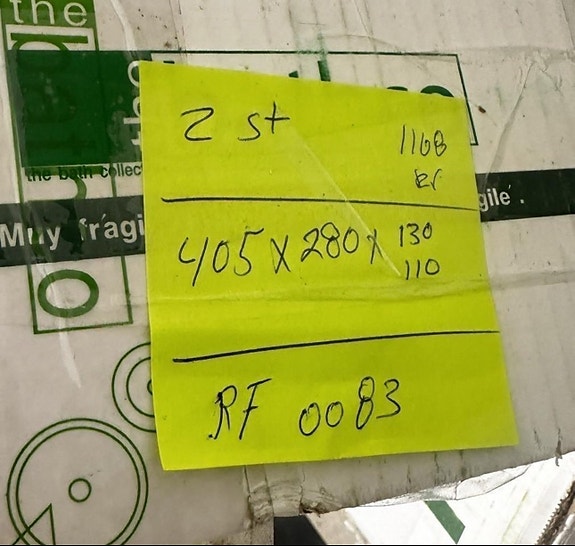 the
the bath collec
Muy frági
gile.
2 st
1168
kr
405 x 280 x 130
110
RF 0083